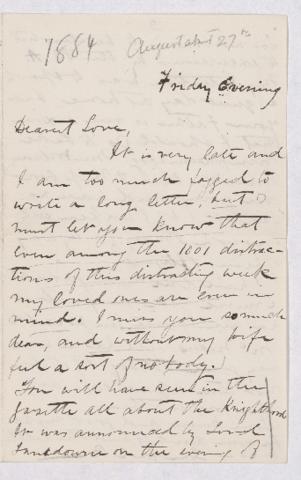 1884 August about 27th
Friday Evening
Dearest Love,
It is very late and
I am too much fagged to
write a long letter, but I
must let you know that
even among the 1001 distrac-
tions of this distracting week
my loved ones are ever in
mind. I miss you so much
dear, and without my wife
feel a sort of nobody.
You will have seen in the
gazette all about the Knighthood
It was announced by Lord
Lansdowne on the evening of